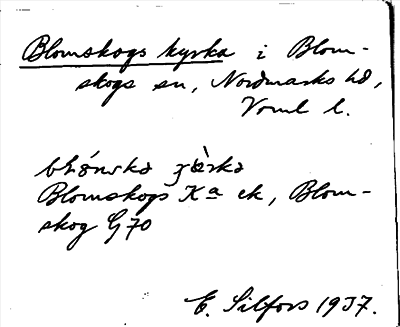 Blomskogs kyrka i Blom-
skogs sn, Nordmarks hd,
Verml l.
Blomskogs Ka ek, Blom-
skog G70
E. Silfors 1937.